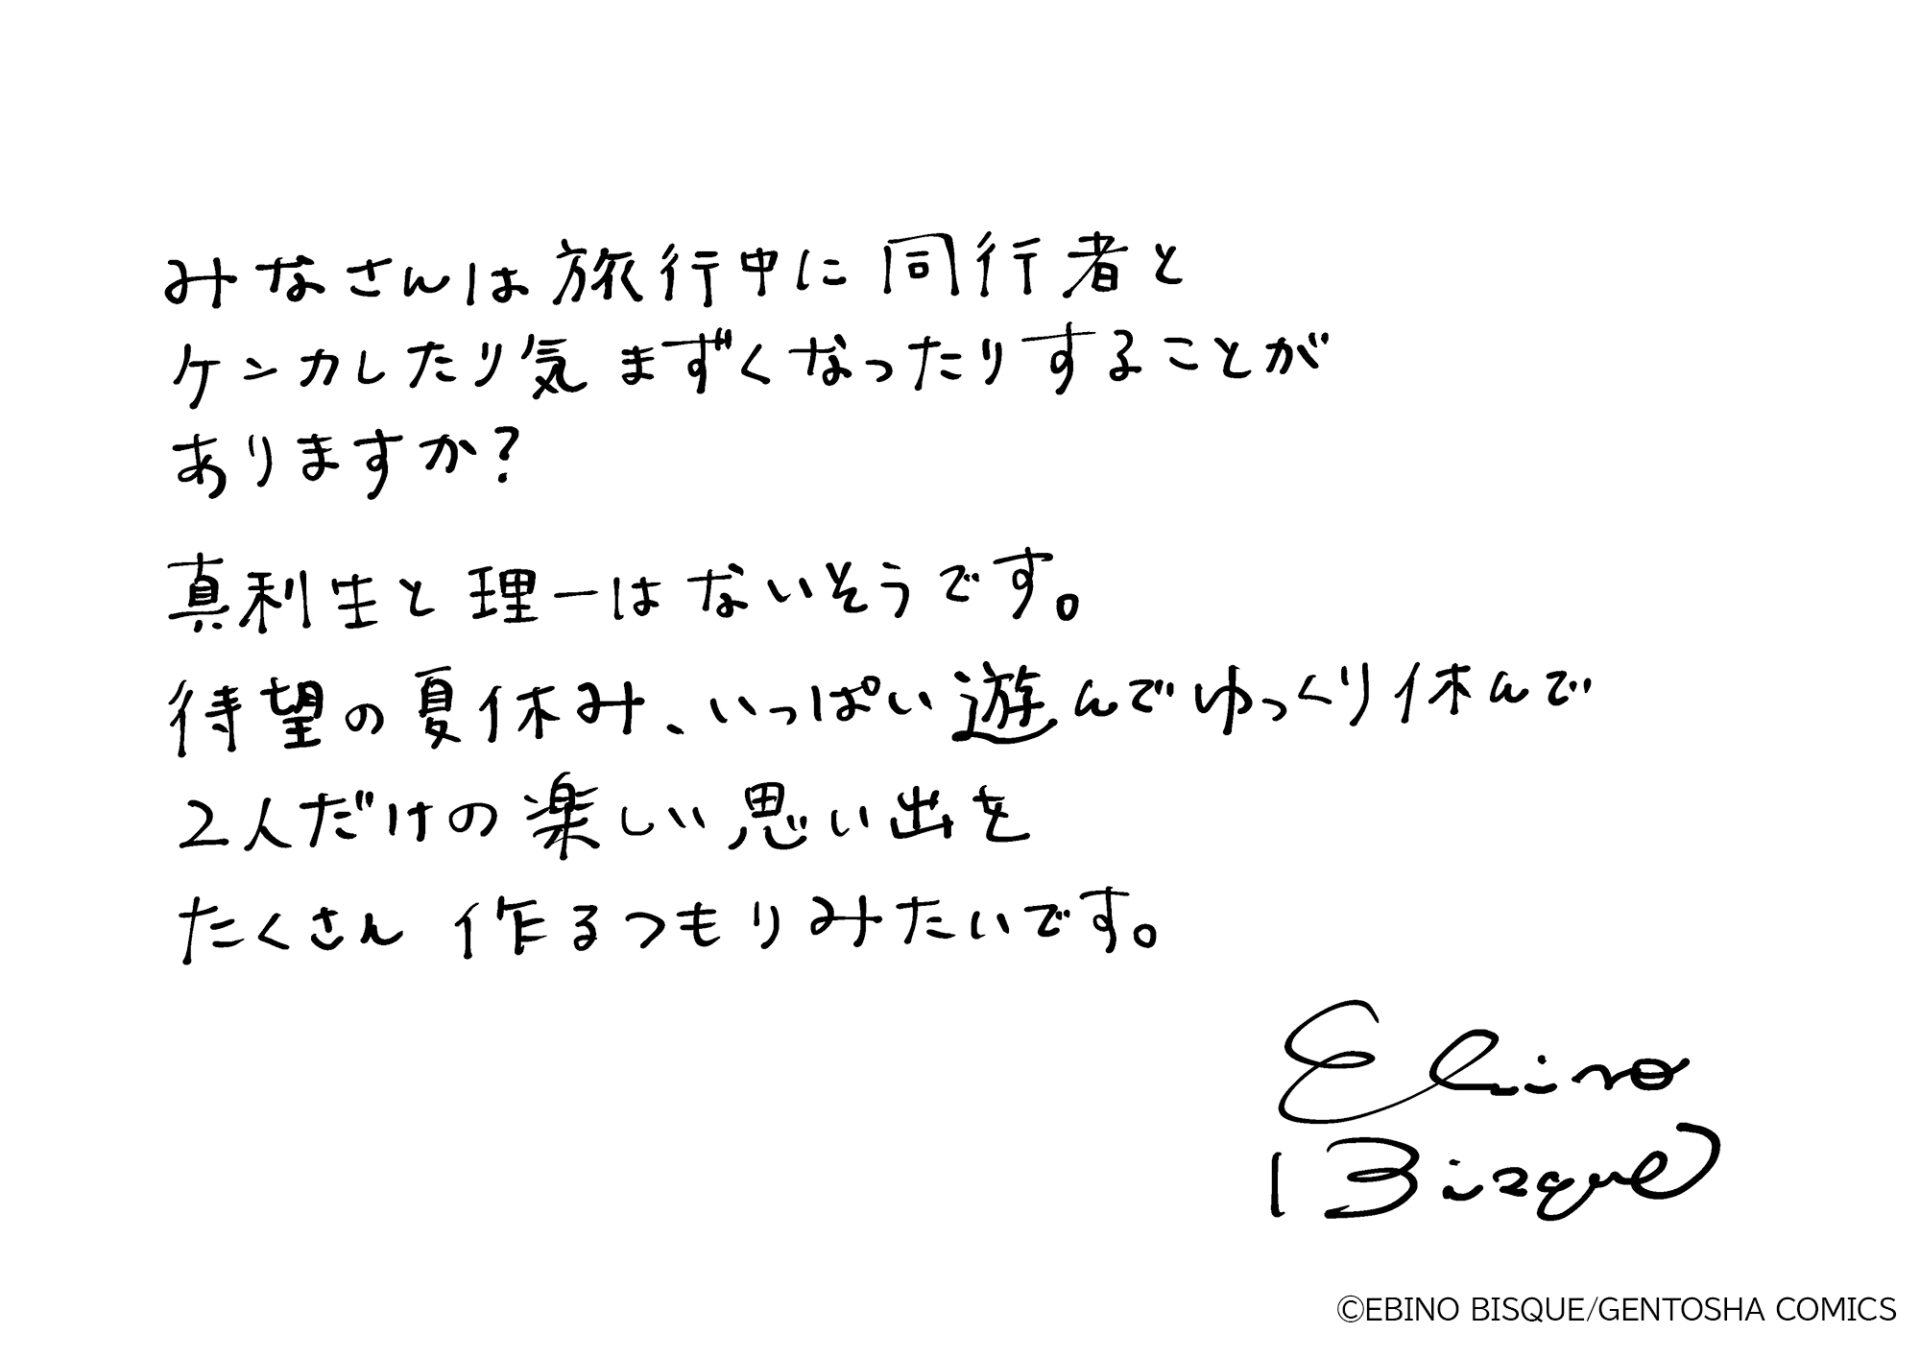 みなさんは旅行中に同行者と
ケンカしたり気まずくなったりすることが
ありますか?
真利生と理一はないそうです。
待望の夏休み、いっぱい遊んでゆっくり休んで
2人だけの楽しい思い出を
たくさん作るつもりみたいです。
Ebino
Bisque
©EBINO BISQUE/GENTOSHA COMICS